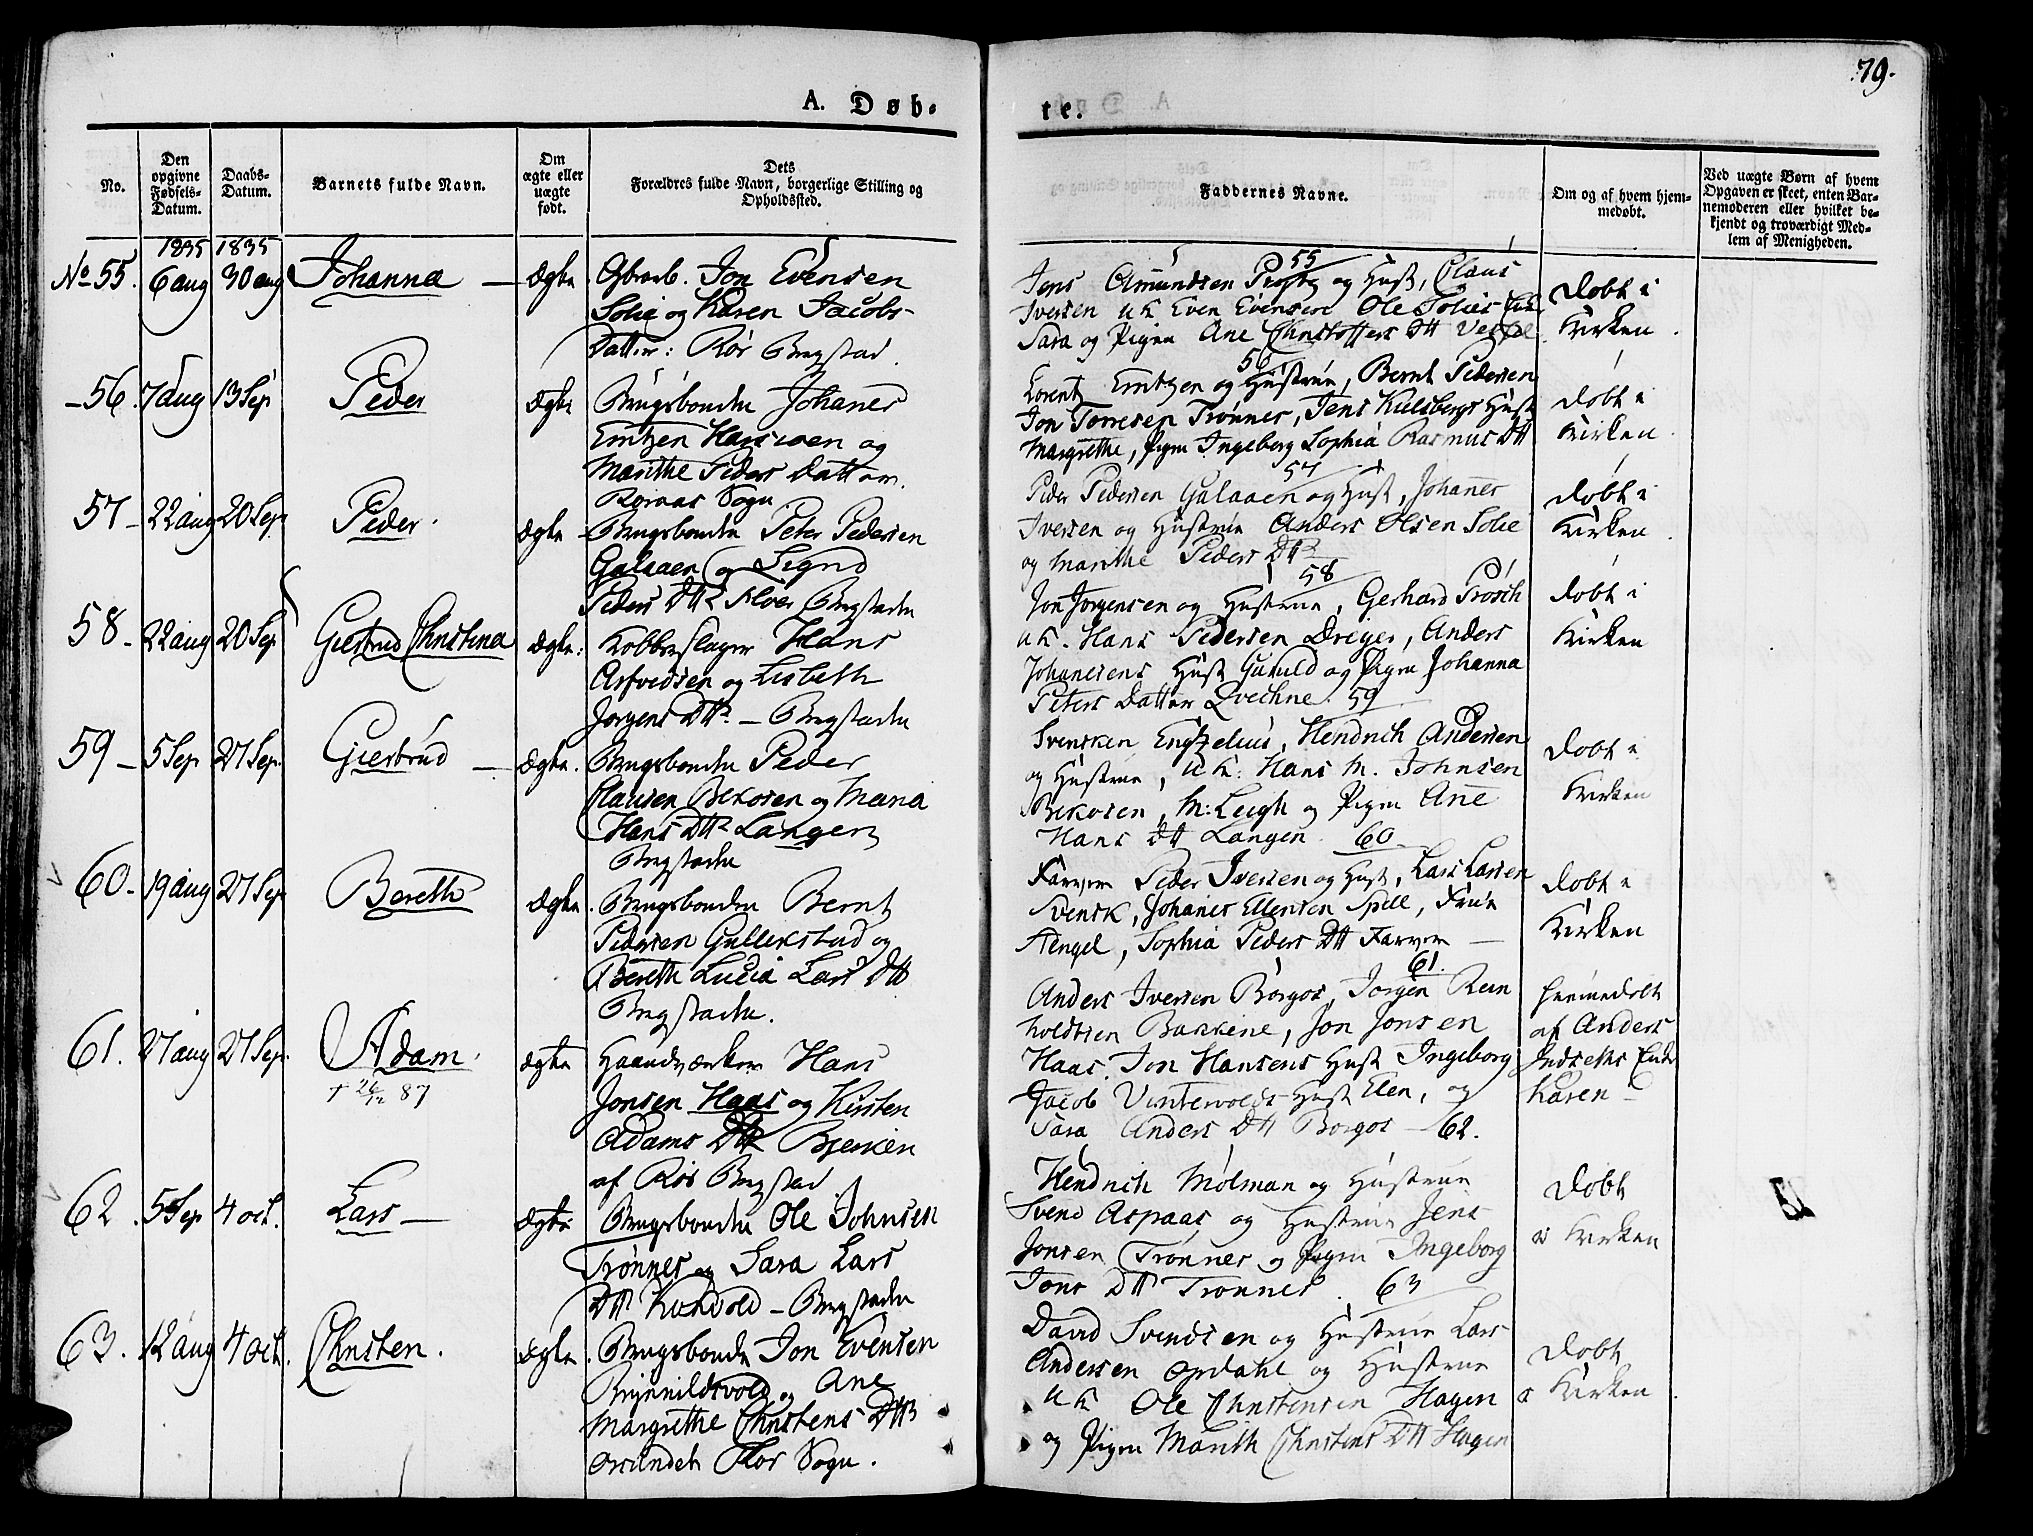 79.
A. Døb-
te.
No.
Den opgivne Fødsels-Datum.
Daabs-Datum.
Barnets fulde Navn.
Om ægte eller uægte født.
Dets Forældres fulde Navn, borgerlige Stilling og Opholdssted.
Faddernes Navne.
Om og af hvem hjem-medøbt.
Ved uægte Børn af hvem Opgaven er skeet, enten Bar-nemoderen eller hvilket be-kjendt og troværdigt Med-lem af Menigheden.
1835 1835
No 55. 6 aug 30 aug Johanna — Ægte
Jon Evensen
Solie og Karen Jacobs-
Datter: Rør Bergstad.
55
Jens Amundsen og Hust, Claus
Iversen u k Even Evensen Ole Solies
Sara og Pigen Ane Christoffers Dtt
Døbt i
Kirken.
56. 7 aug 13 Sep Peder Ægte
Brugsbonden Johanes
Erntzen og
Marithe Peders Datter.
Røraas Sogn
56
Lorentz Erntzen og Hustrue, Bernt Pedersen
Jon Tønnes, Jens Kulsbergs Hust
Margrethe, Pigen Ingeborg Sophia Rasmus Dtt
Døbt i
Kirken.
57 - 22 aug 20 Sep Peder. Ægte -
Brugsbonden Peter Pedersen
Galaaen og Sigrid
Peders Dtr Bergstaden
57
Peder Pedersen Galaaen og Hust, Johannes
Iversen og Hustrue Anders Olsen Solie
og Marithe Peders Dtt
Døbt i
Kirken.
58 - 22 aug 20 Sep Giertrud Christina Ægte:
Kobberslager Hans
Arfvedsen og Lisbeth
Jørgens Dtr - Bergstaden
58
Jon Jørgensen og Hustrue, Gerhard Prøsch
u k. Hans Pedersen Dreyer, Anders
Johanesens Hust Guruld og Pigen Johanna
Peters Datter Qvechne.
Døbt i
Kirken
59 - 5 Sep 27 Sep. Giertrud — Ægte.
Brugsbonden Peder
Clausen Bekosen og Maria
Hans Dtr Langen
Bergstaden
59
Svensken Engzelius, Hendrich Andersen
og Hustrue, u k: Hans M. Johnsen
Bekosen, M: Leigh og Pigen Ane
Hans Dtt Langen
Døbt i
Kirken
60 - 19 aug 27 Sep Bereth Ægte.
Brugsbonden Bernt
Pedersen Gullikstad og
Bereth Lucia Lars Dtt
Bergstaden.
60
Farver Peder Iversen og Hust, Lars Larsen
Svensk, Johanes Ellensen Spell, Frue
Aengel, Sophia Peders Dtt Farver —
Døbt i
Kirken
61. 27 aug 27 Sep. Adam.
† 26/12 87
Ægte
Haandværker Hans
Jonsen Haas og Kirsten
Adams Dtr Bjerken
af Rør Bergstad
61.
Anders Iversen Borgos, Jørgen Rein
holdtsen Bakkene, Jon Jonsen
Haas. Jon Hansens Hust Ingeborg
Jacob Vintervolds Hust Elen, og
Sara Anders Dtt Borgos
hiemedøbt
af Anders
Indsets Enke
Karen -
62. 5 Sep 4 oct. Lars — Ægte:
Brugsbonden Ole Johnsen
Trønnes og Sara Lars
Dtr Kuhvold - Bergstaden
62.
Hendrich Mølman og Hustrue
Svend Aspaas og Hustrue Jens
Jonsen Trønnes og Pigen Ingeborg
Jons Dtt Trønnes.
Døbt
i Kirken
63. 12 aug 4 oct. Christen. Ægte.
Brugsbonde Jon Evensen
Brynnildsvold og Ane
Margrethe Christens Dtr
Sogn.
63
David Svendsen og Hustrue Lars
Andersen Opdahl og Hustrue
u k Ole Christensen Hagen
og Pigen Marith Christens Dtt Hagen
Døbt
i Kirken.